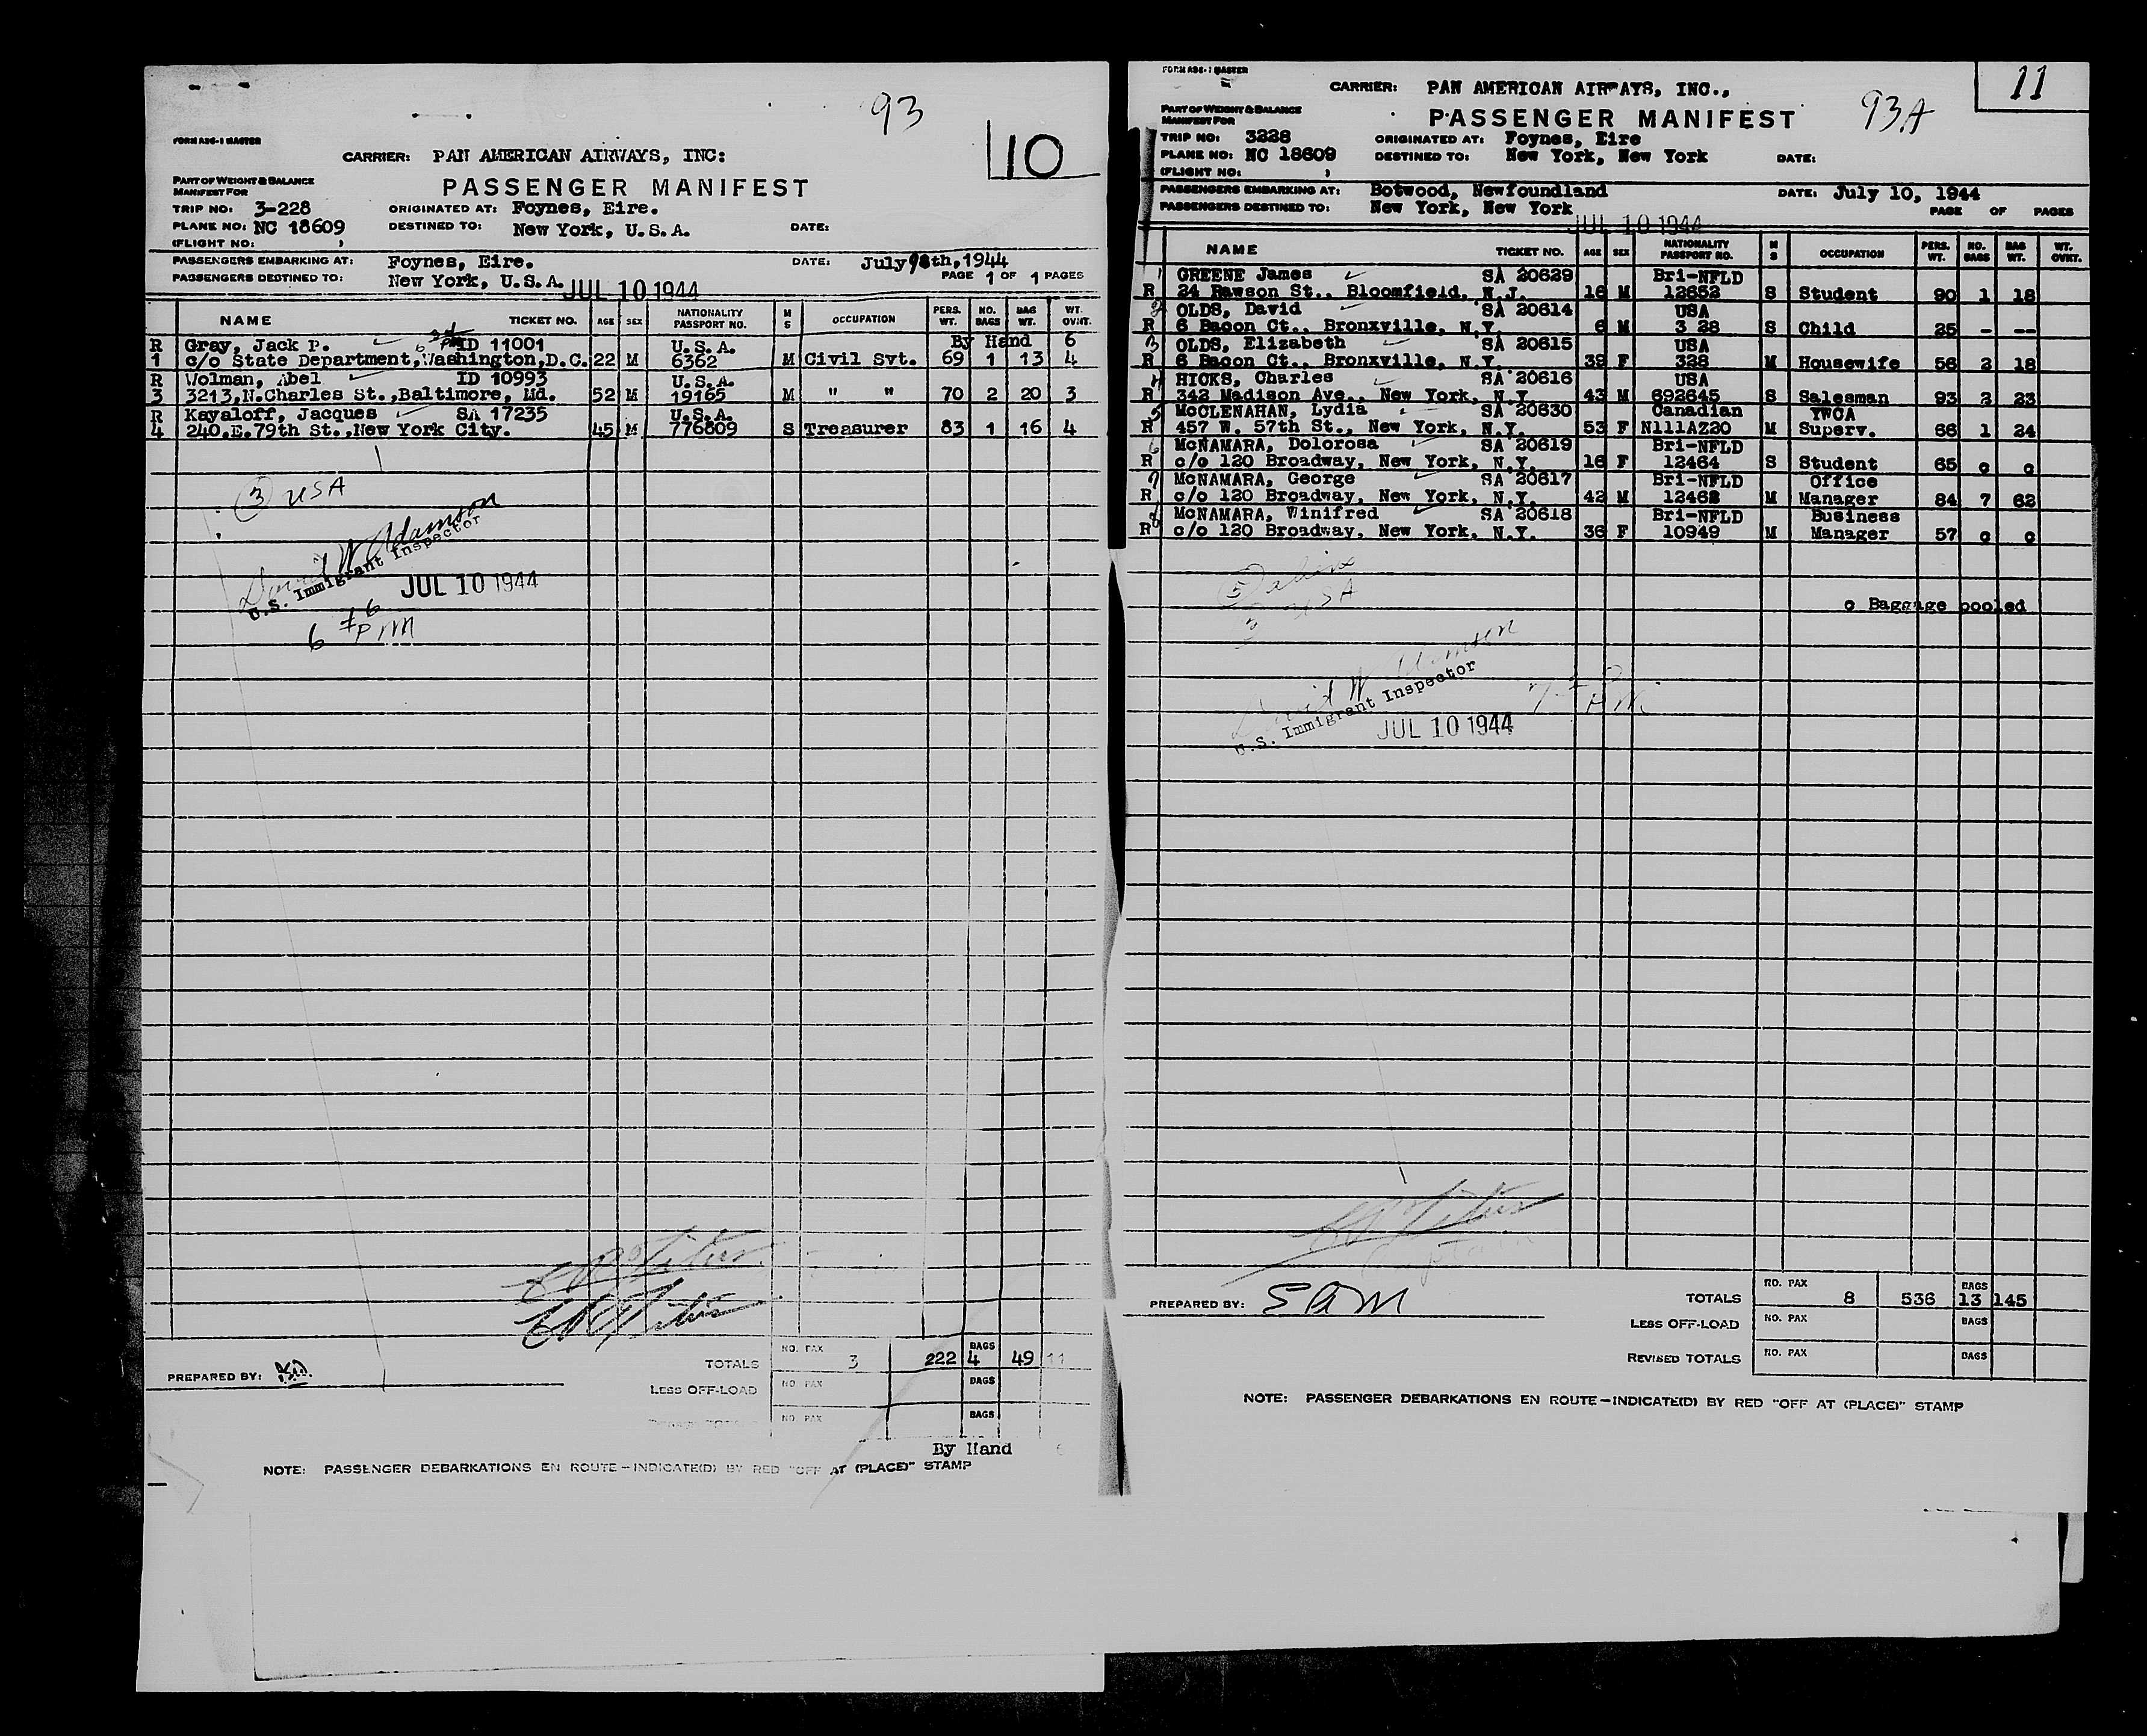 93
10
FORM ASC-1 MASTER
CARRIER: PAN AMERICAN AIRWAYS, INC:
PART OF WEIGHT & BALANCE
MANIFEST FOR
PASSENGER MANIFEST
TRIP NO: 3-228 ORIGINATED AT: Foynes, Eire.
PLANE NO: NC 18609 DESTINED TO: New York, U.S.A. DATE:
(FLIGHT NO: )
PASSENGERS EMBARKING AT: Foynes, Eire. DATE: July th,1944
PAGE 1 OF 1 PAGES
PASSENGERS DESTINED TO: New York, U.S.A. JUL 10 1944
NAME TICKET NO. AGE SEX NATIONALITY PASSPORT NO. M S OCCUPATION PERS. WT. NO. BAGS BAG WT. WT. OVNT.
R Gray, Jack P. ID 11001 U.S.A. By Hand 6
1 c/o State Department,Washington,D.C. 22 M 6362 M Civil Svt. 69 1 13 4
R Wolman, Abel ID 10993 U.S.A.
3 3213,N.Charles St.,Baltimore, Md. 52 M 19165 M " " 70 2 20 3
R Kayaloff, Jacques SA 17235 U.S.A.
4 240.E.79th St.,New York City. 45 M 776809 S Treasurer 83 1 16 4
3 USA
David W Adamson
U.S. Immigrant Inspector
JUL 10 1944
6 PM
TOTALS NO. PAX 3 222 BAGS 4 49 11
PREPARED BY:
LESS OFF-LOAD NO. PAX BAGS
NO. PAX BAGS
By Hand 6
NOTE: PASSENGER DEBARKATIONS EN ROUTE—INDICATE(D) BY RED "OFF AT (PLACE)" STAMP
FORM ASC-1 MASTER
11
CARRIER: PAN AMERICAN AIRWAYS, INC.,
93A
PART OF WEIGHT & BALANCE
MANIFEST FOR
PASSENGER MANIFEST
TRIP NO: 3228 ORIGINATED AT: Foynes, Eire
PLANE NO: NC 18609 DESTINED TO: New York, New York DATE:
(FLIGHT NO: )
PASSENGERS EMBARKING AT: Botwood, Newfoundland DATE: July 10, 1944
PASSENGERS DESTINED TO: New York, New York PAGE OF PAGES
JUL 10 1944
NAME TICKET NO. AGE SEX NATIONALITY PASSPORT NO. M S OCCUPATION PERS. WT. NO. BAGS BAG WT. WT. OVNT.
1 GREENE James SA 20629 Bri-NFLD
R 24 Rawson St., Bloomfield, N.J. 16 M 12652 S Student 90 1 18
2 OLDS, David SA 20614 USA
R 6 Bacon Ct., Bronxville, N.Y. 6 M 3 28 S Child 25 - --
3 OLDS, Elizabeth SA 20615 USA
R 6 Bacon Ct., Bronxville, N.Y. 39 F 328 M Housewife 56 2 18
4 HICKS, Charles SA 20616 USA
R 342 Madison Ave., New York, N.Y. 43 M 692645 S Salesman 93 2 23
5 McCLENAHAN, Lydia SA 20630 Canadian YWCA
R 457 W. 57th St., New York, N.Y. 53 F N111AZ20 M Superv. 66 1 24
6 McNAMARA, Dolorosa SA 20619 Bri-NFLD
R c/o 120 Broadway, New York, N.Y. 16 F 12464 S Student 65 c c
7 McNAMARA, George SA 20617 Bri-NFLD Office
R c/o 120 Broadway, New York, N.Y. 42 M 12462 M Manager 84 7 62
8 McNAMARA, Winifred SA 20618 Bri-NFLD Business
R c/o 120 Broadway, New York, N.Y. 36 F 10949 M Manager 57 c c
5 aliens
3 USA
c Baggage pooled
David W Adamson
U.S. Immigrant Inspector
JUL 10 1944
Captain
PREPARED BY: SAM
TOTALS NO. PAX 8 536 BAGS 13 145
LESS OFF-LOAD NO. PAX BAGS
REVISED TOTALS NO. PAX BAGS
NOTE: PASSENGER DEBARKATIONS EN ROUTE—INDICATE(D) BY RED "OFF AT (PLACE)" STAMP